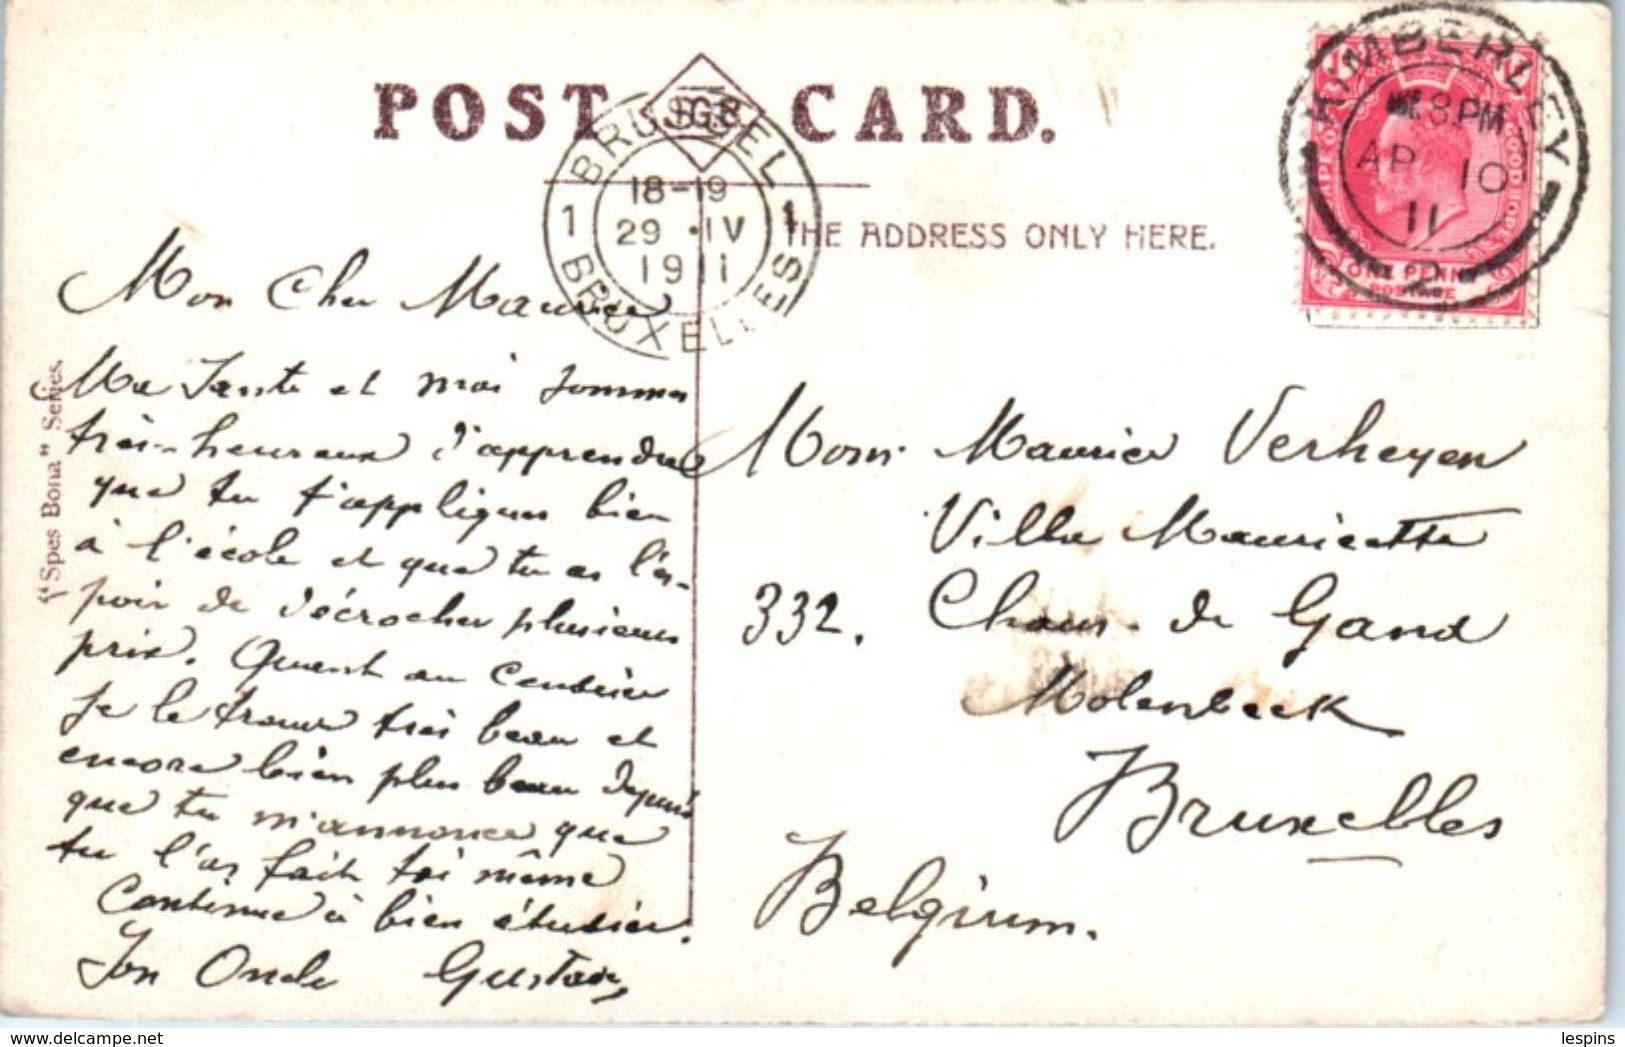 POST CARD.
JGB
THE ADDRESS ONLY HERE.
BRUSSEL
1 18-19 1
29 · IV
1911
BRUXELLES
KIMBERLEY
8.PM
AP 10
11
2
CAPE OF GOOD HOPE
ONE PENNY
POSTAGE
"Spes Bona" Series.
Mon Cher Maurice
Ma Tante et moi sommes
très-heureux d'apprendre
que tu t'appliques bien
à l'école et que tu as l'es-
poir de décrocher plusieurs
prix. Quant au Cendrier
Je le trouve très beau et
encore bien plus beau depuis
que tu m'annonce que
tu l'as fait toi même
Continue à bien étudier.
Ton Oncle Gustave
Monsr Maurice Verheyen
Villa Mauricette
332. Chaus. de Gand
Molenbeek
Bruxelles
Belgium.
www.delcampe.net
lespins